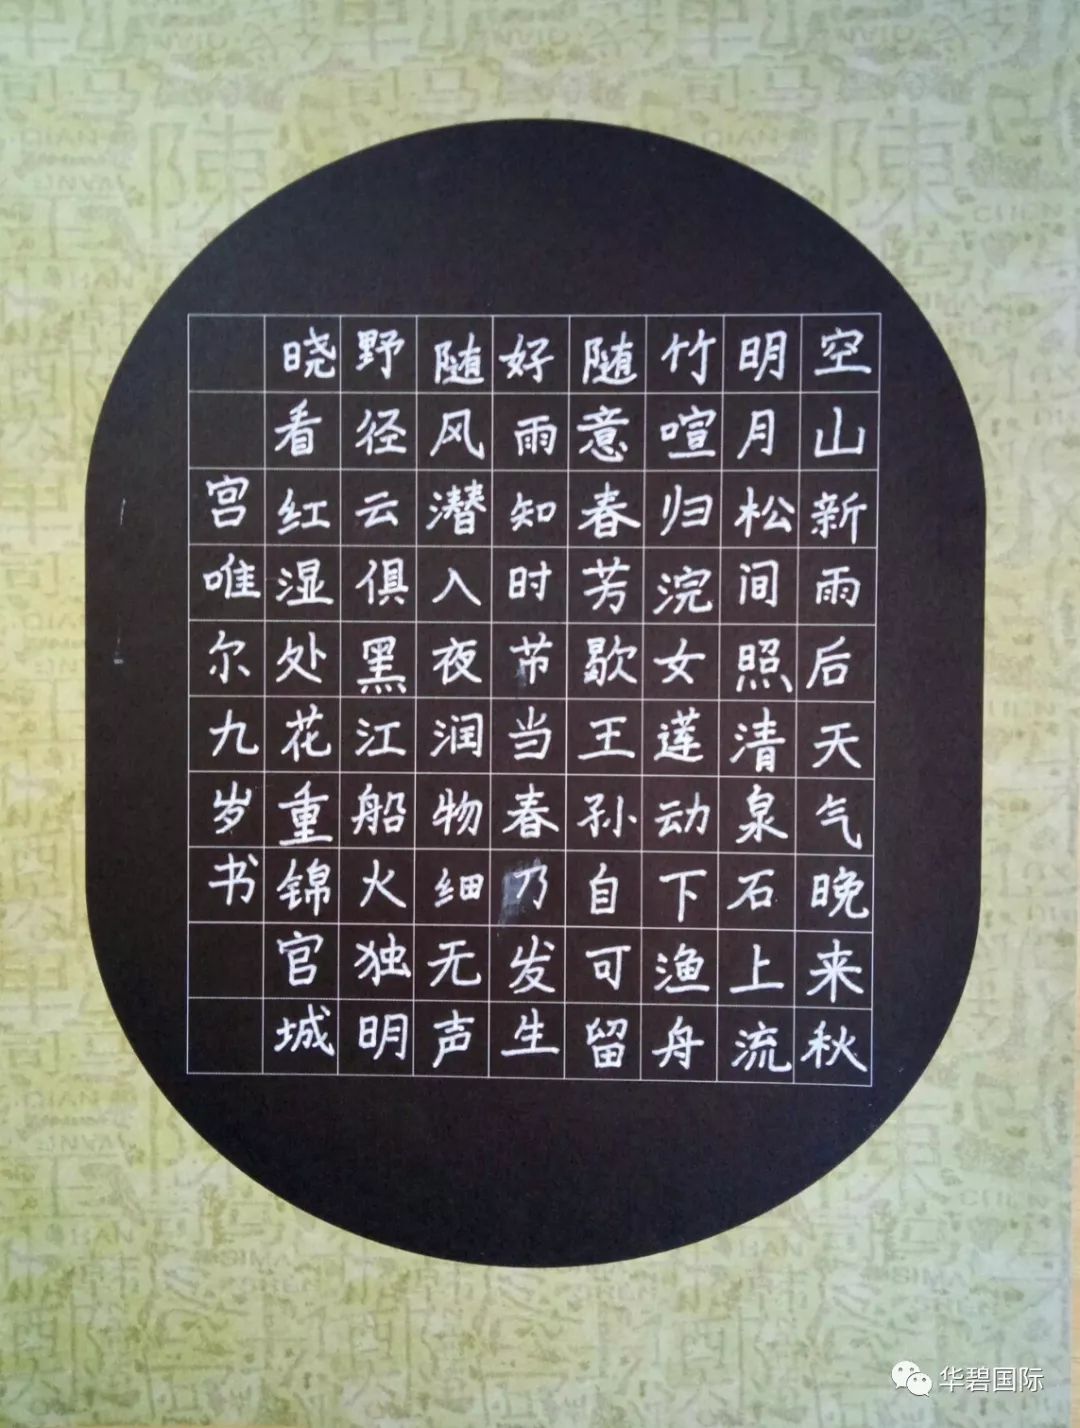 空山新雨后天气晚来秋
明月松间照清泉石上流
竹喧归浣女莲动下渔舟
随意春芳歇王孙自可留
好雨知时节当春乃发生
随风潜入夜润物细无声
野径云俱黑江船火独明
晓看红湿处花重锦官城
宫唯尔九岁书
华碧国际